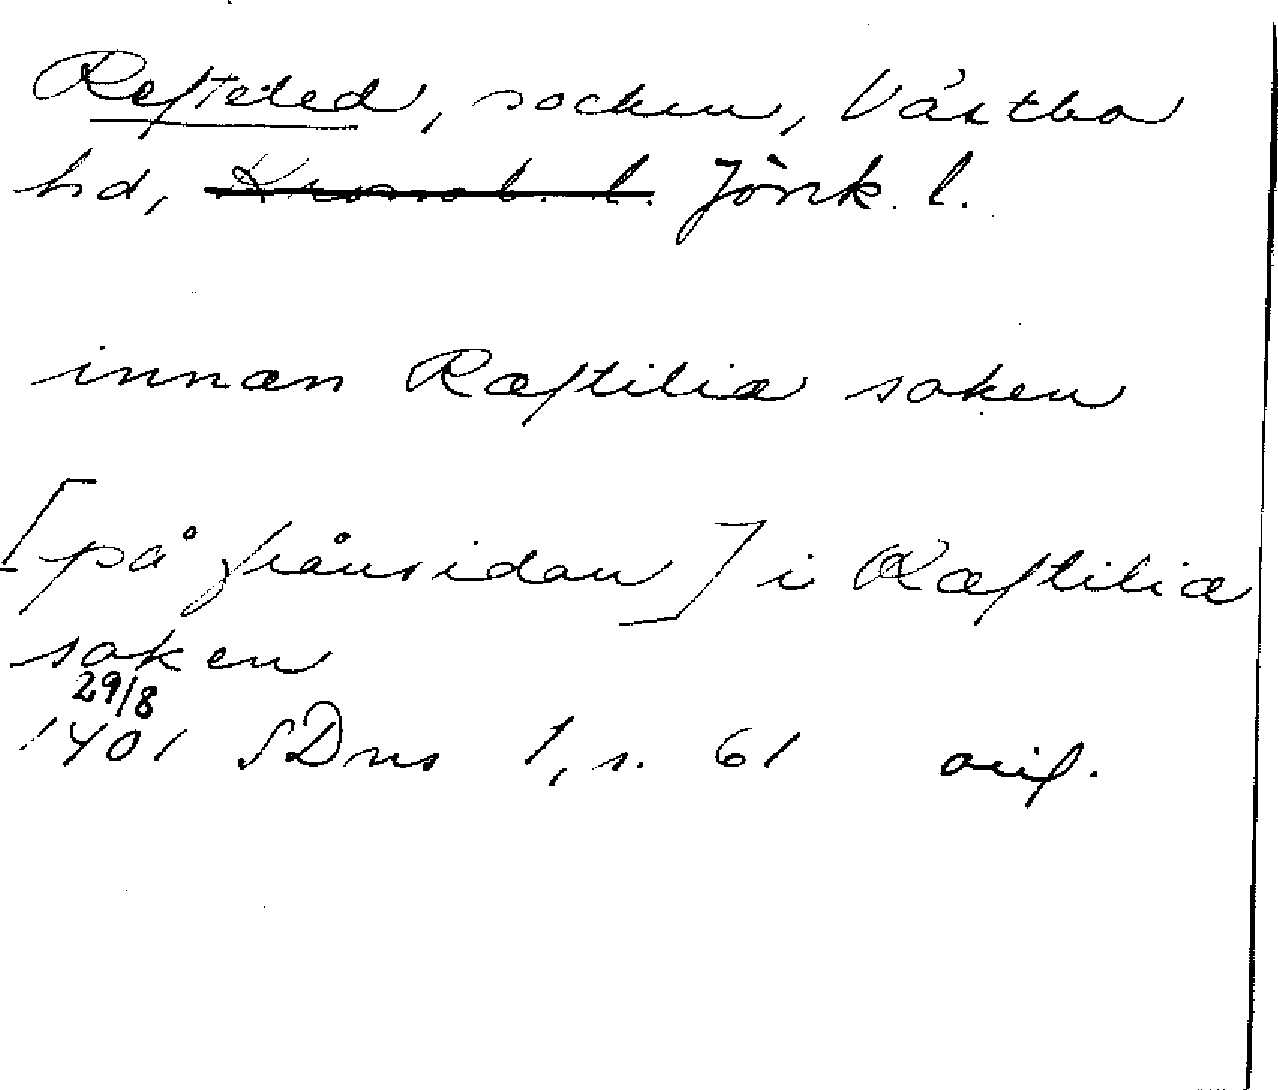 Refteled, socken, Västbo
hd, Kronob. l. Jönk. l.
innan Ræftiliæ soken
[på frånsidan] i Ræftiliæ
soken
29/8
1401 SDns 1, s. 61 orig.